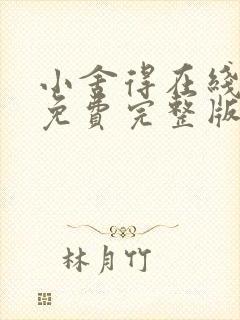 小舍得在綫
免費完整版
林月竹